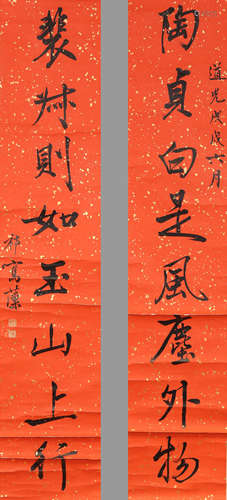 陶貞白是風塵外物
道光戊戌六月
裴叔則如玉山上行
祁寯藻